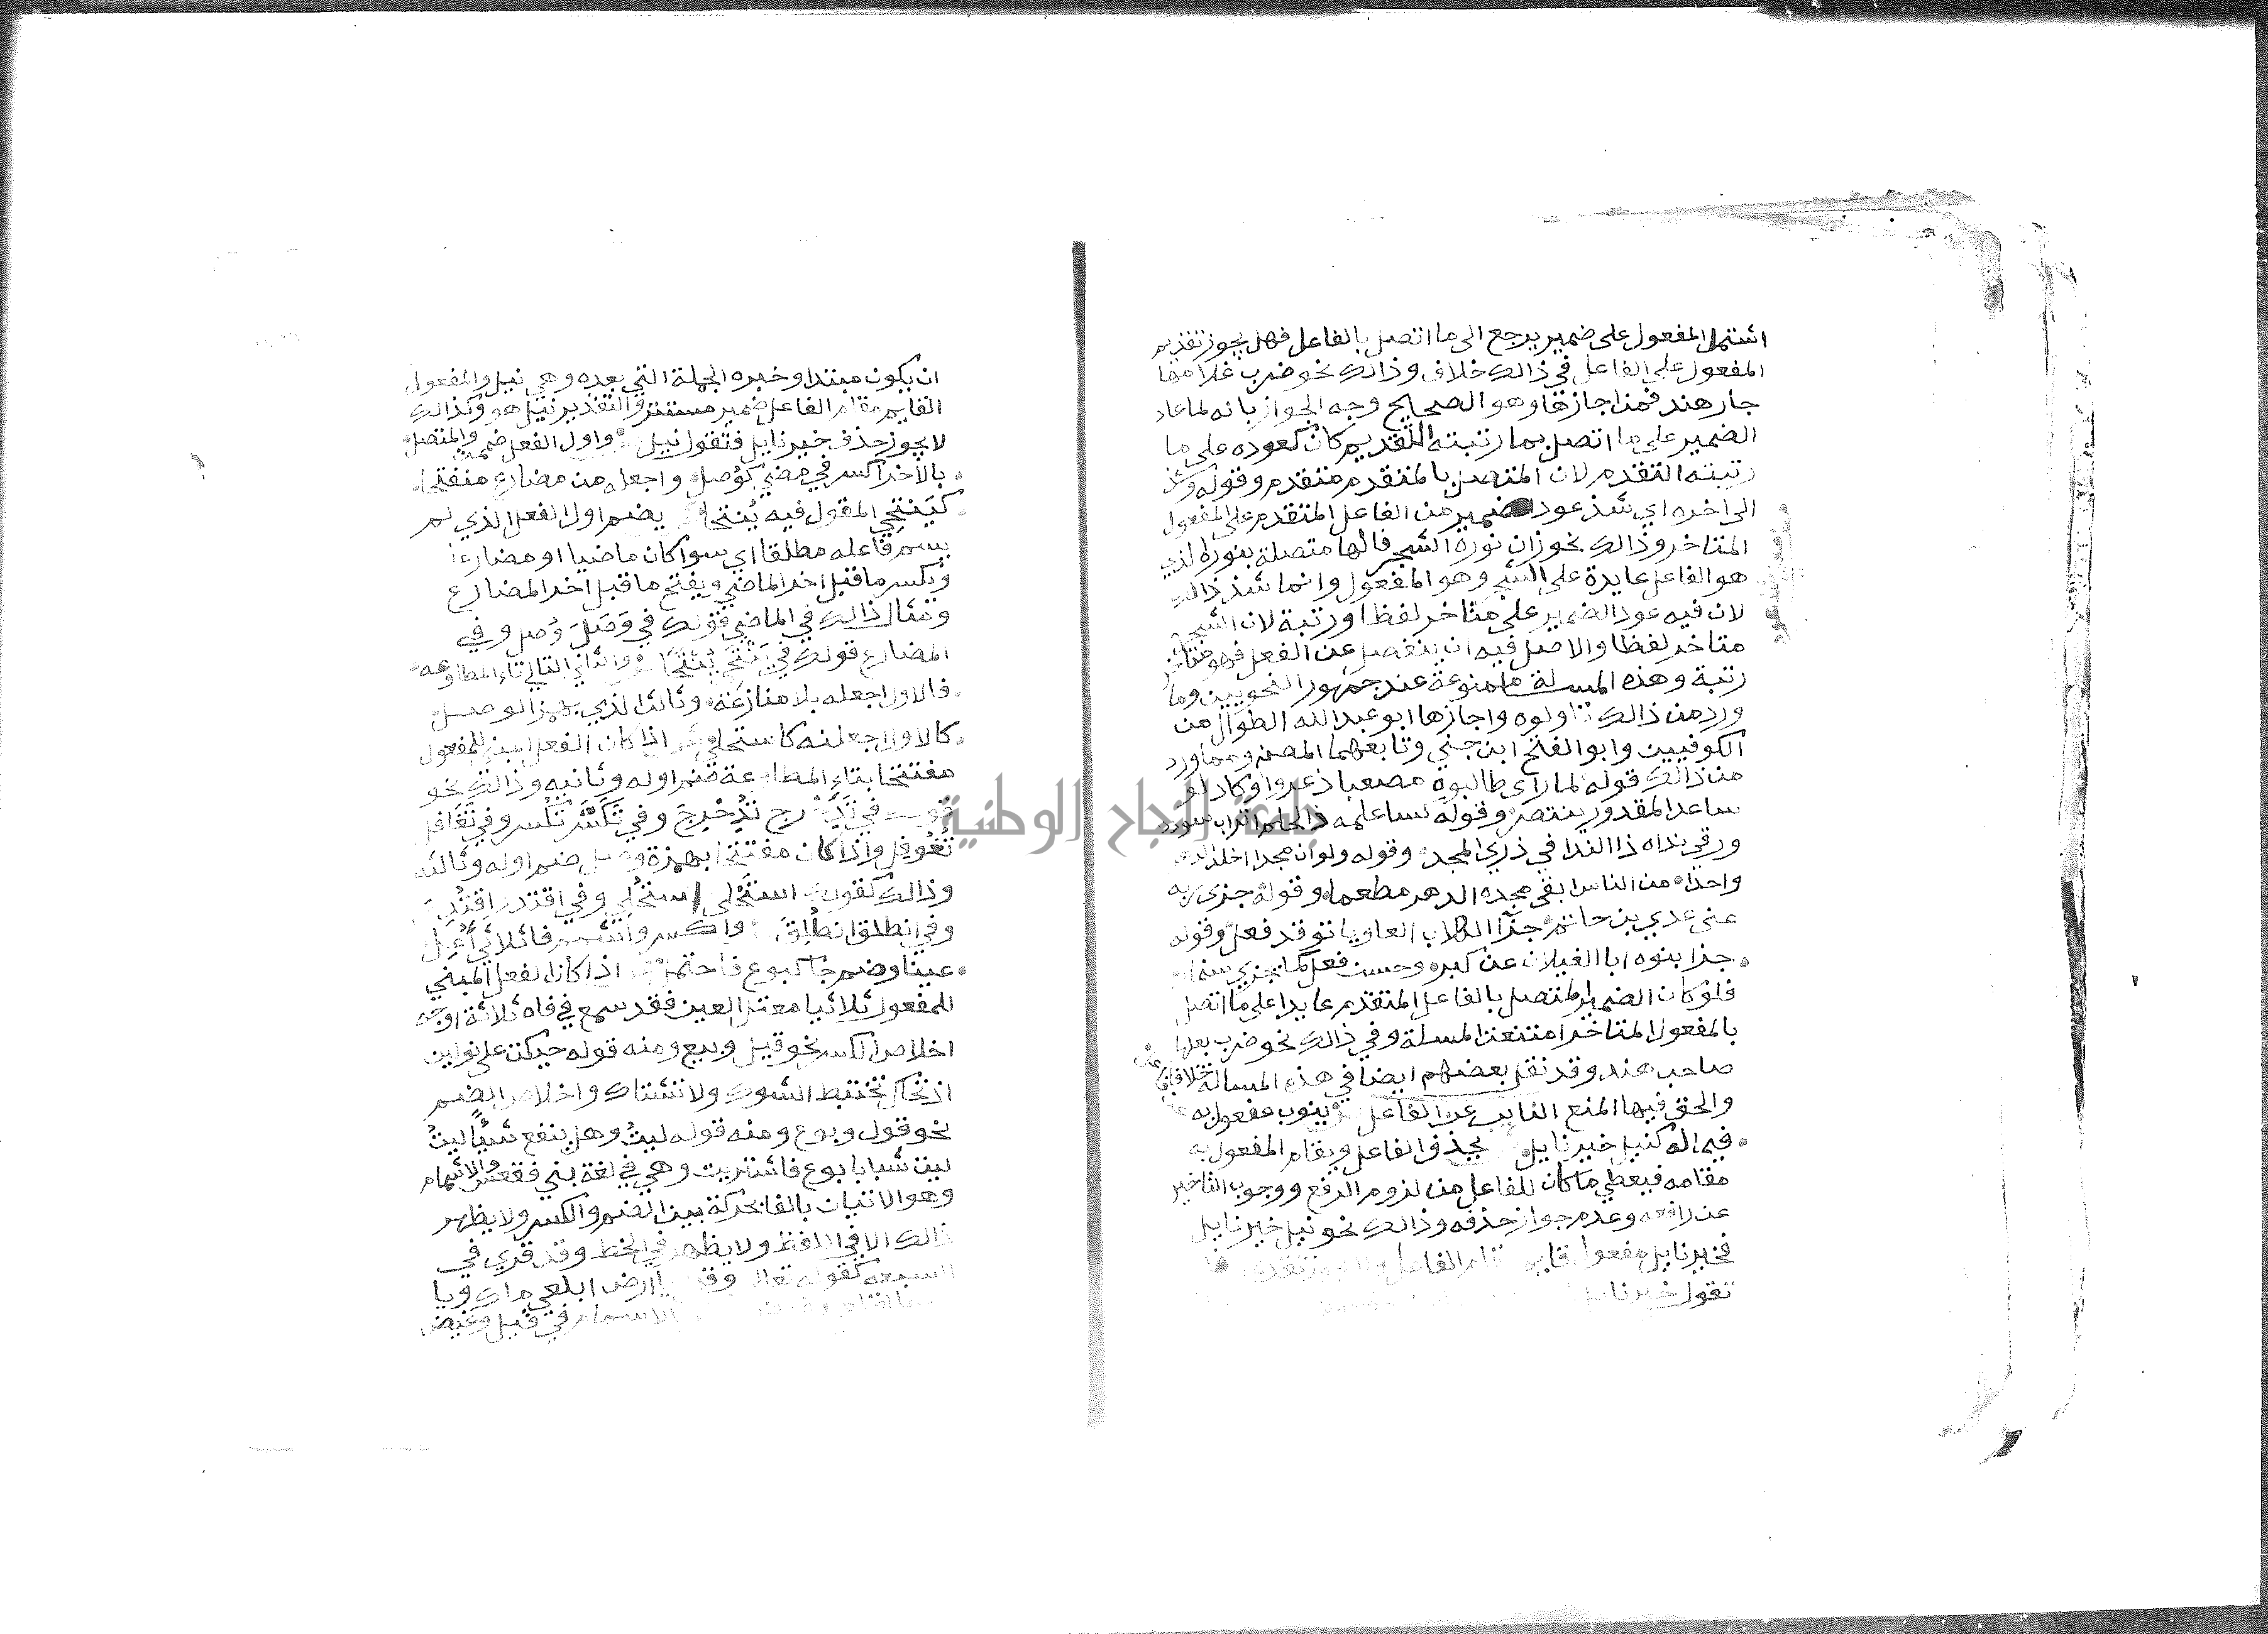 اشتمل المفعول على ضمير يرجع الى ما اتصل بالفاعل فهل يجوز تقديم
المفعول على الفاعل في ذالك خلاف وذالك نحو ضرب غلامها
جار هند فمن اجازها وهو الصحيح وجه الجواز بانه لما عاد
الضمير على ما اتصل بما رتبته التقديم كان كعوده على ما
رتبته التقدم لان المتصل بالمتقدم متقدم وقوله وشذ
الى اخره اي شذ عود الضمير من الفاعل المتقدم على المفعول
المتاخر وذالك نحو زان نوره الشجر فالها متصلة بنور الذي
هو الفاعل عايدة على الشجر وهو المفعول وانما شذ ذالك
لان فيه عود الضمير على متاخر لفظا ورتبة لان الشجر
متاخر لفظا والاصل فيه ان ينفصل عن الفعل فهو متاخر
رتبة وهذه المسلة ممنوعة عند جمهور النحويين وما
ورد من ذالك تاولوه واجازها ابو عبد الله الطوال من
الكوفيين وابو الفتح ابن جني وتابعهما المصنف ومما ورد
من ذالك قوله لما رآى طالبوه مصعبا ذعروا وكاد لو
ساعد المقدور ينتصر وقوله كسا حلمه ذا الحلم اثواب سودد
ورقي نداه ذا الندا في ذري المجد وقوله ولو ان مجدا اخلد الدهر
واحدا من الناس ابقى مجده الدهر مطعما وقوله جزى ربه
عني عدي بن حاتم جزآ الكلاب العاويات وقد فعل وقوله
جزا بنوه ابا الغيلان عن كبره وحسن فعل كما يجزي سنمار
فلو كان الضمير المتصل بالفاعل المتقدم عايدا على ما اتصل
بالمفعول المتاخر امتنعت المسلة وفي ذالك نحو ضرب بعلها
صاحب هند وقد نقل بعضهم ايضا في هذه المسالة خلافا
والحق فيها المنع النايب عن الفاعل ينوب مفعول به
فيما له كنيل خير نايل يحذف الفاعل ويقام المفعول به
مقامه فيعطي ما كان للفاعل من لزوم الرفع ووجوب التاخير
عن رافعه وعدم جواز حذفه وذالك نحو نيل خير نايل
فخير نايل مفعول قايم مقام الفاعل
تقول خير نايل
ان يكون مبتدا وخبره الجملة التي بعده وهي نيل والمفعول
القايم مقام الفاعل ضمير مستتر والتقدير نيل هو وكذالك
لا يجوز حذف خير نايل فتقول نيل واول الفعل ضمه والمتصل
بالاخر اكسر في مضي كوصل واجعله من مضارع منفتحا
كينتحي المقول فيه يُنتحا يضم اول الفعل الذي لم
يسم فاعله مطلقا اي سوا كان ماضيا او مضارعا
ويكسر ما قبل اخر الماضي ويفتح ما قبل اخر المضارع
ومثال ذالك في الماضي قولك في وَصَلَ وُصِل وفي
المضارع قولك في يَنْتَحي يُنْتَحَا والثاني التالي تا المطاوعه
فالاول اجعله بلا منازعة وثالث الذي بهمز الوصل
كالاول اجعلنه كاستحلي اذا كان الفعل المبني للمفعول
مفتتحا بتاء المطاوعة ضم اوله وثانيه وذالك نحو
قولك في تَدَحْرج تُدُحْرِجَ وفي تَكَسَّر تُكُسر وفي تَغَافل
تُغُوفِل واذا كان مفتتحا بهمزة وصل ضم اوله وثالثه
وذالك كقولك استَحْلى استُحْلِي وفي اقتدر اقتُدِر
وفي انطلق انطُلِقَ واكسر واشمم فا ثلاثي أُعِل
عينا وضم جا كبوع فاحتمل اذا كان الفعل المبني
للمفعول ثلاثيا معتل العين فقد سمع في فاه ثلاثة اوجه
اخلاص الكسر نحو قيل وبيع ومنه قوله حيكت على نولين
اذ تحاك تختبط الشوك ولا تشتاك واخلاص الضم
نحو قول وبوع ومنه قوله ليت وهل ينفع شيئا ليت
ليت شبابا بوع فاشتريت وهي في لغة بني فقعس والاشمام
وهو الاتيان بالفا بحركة بين الضم والكسر ولا يظهر
ذالك الا في اللفظ ولا يظهر في الخط وقد قري في
السبعه كقوله تعالى وقيل يا ارض ابلعي ماك ويا
سما اقلعي الاشمام في قيل وغيض
جامعة النجاح الوطنية